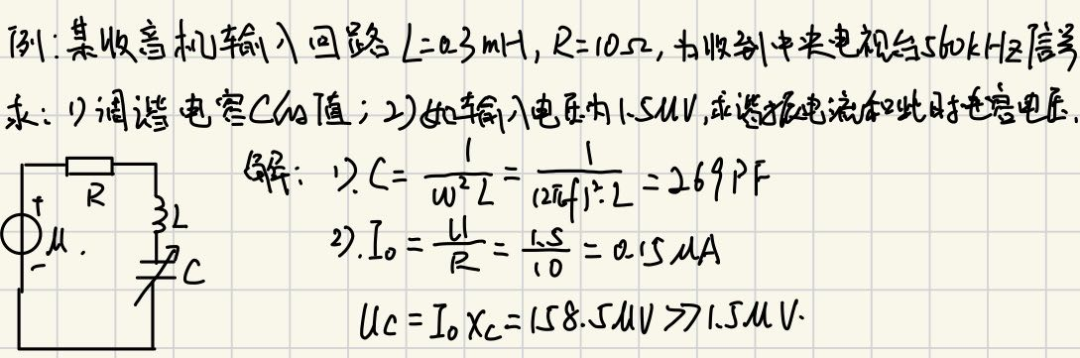 例:某收音机输入回路 L=0.3mH, R=10Ω, 为收到中央电视台560kHz信号
求: 1)调谐电容C的值; 2)如输入电压为1.5μV,求谐振电流和此时电容电压.
解: 1). C = \frac{1}{ω²L} = \frac{1}{(2πf)²·L} = 269PF
2). I₀ = \frac{U}{R} = \frac{1.5}{10} = 0.15μA
Uc = I₀Xc = 158.5μV >> 1.5μV.
R
+
L
μ.
-
C